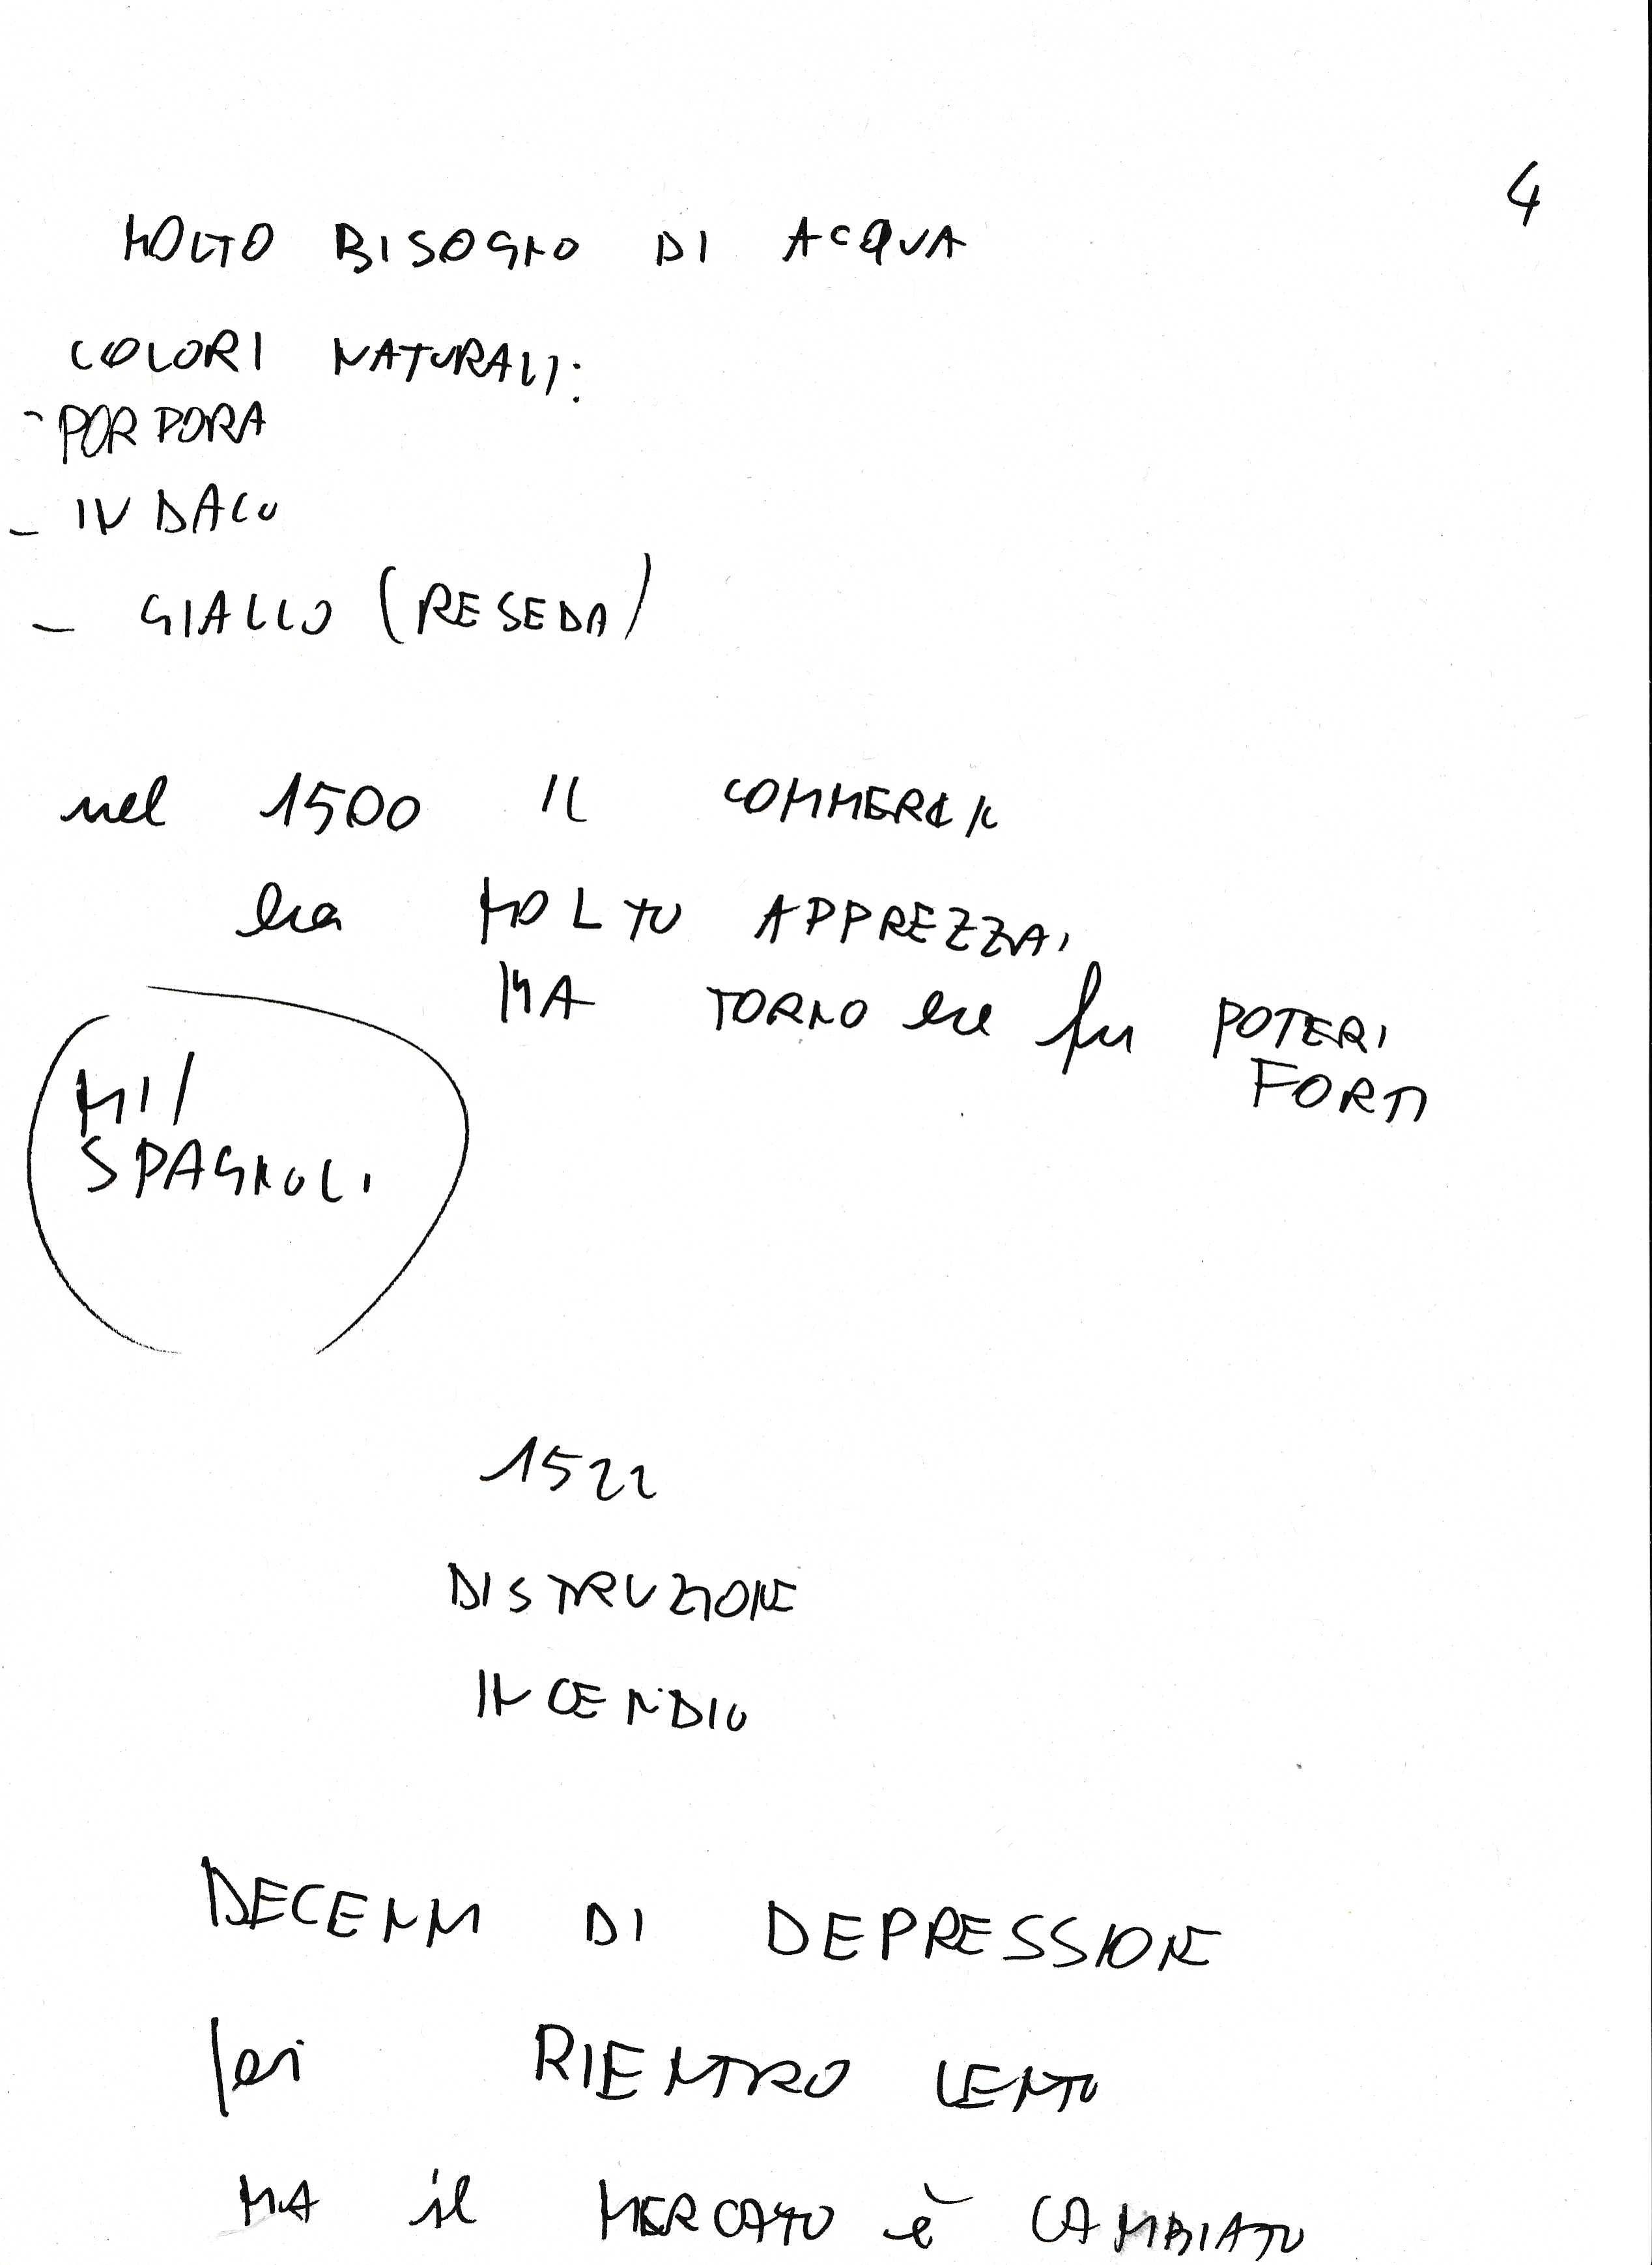 4
MOLTO BISOGNO DI ACQUA
COLORI NATURALI:
- PORPORA
- INDACO
- GIALLO (RESEDA)
nel 1500 IL COMMERCIO
era MOLTO APPREZZA
MA TORNO fu POTERI
FORTI
MI/
SPAGNOLI
1522
DISTRUZIONE
INCENDIO
DECENNI DI DEPRESSIONE
poi RIENTRO LENTO
MA il MERCATO è CAMBIATO